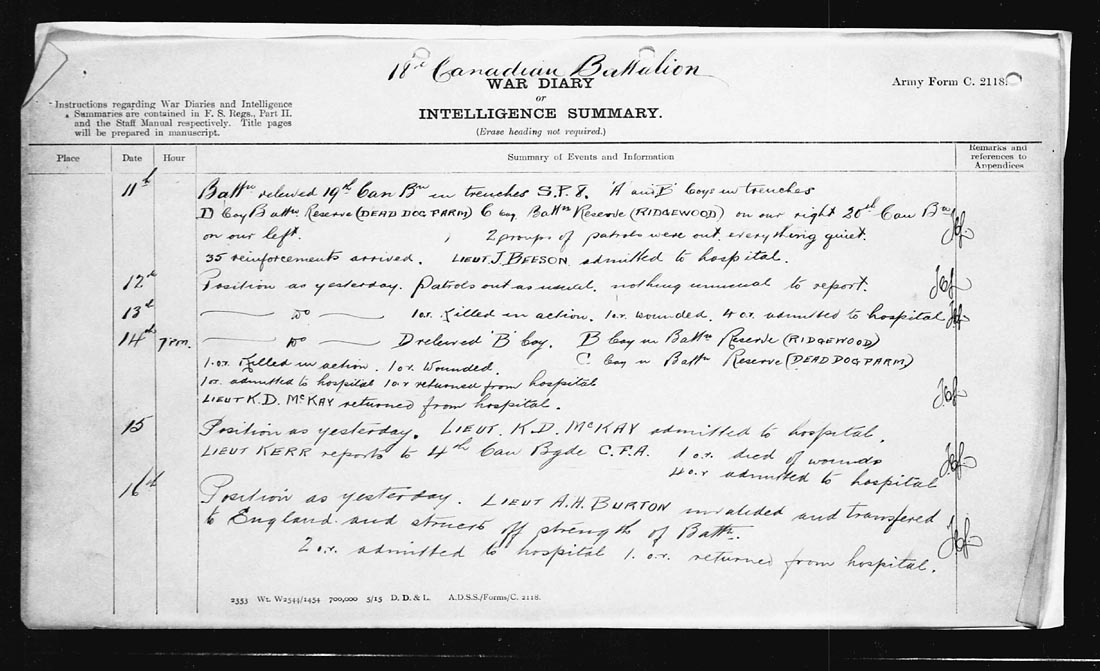 18th Canadian Battalion
WAR DIARY
or
INTELLIGENCE SUMMARY.
(Erase heading not required.)
Army Form C. 2118.
Instructions regarding War Diaries and Intelligence
Summaries are contained in F. S. Regs., Part II.
and the Staff Manual respectively. Title pages
will be prepared in manuscript.
Place Date Hour Summary of Events and Information Remarks and references to Appendices
11th Battn relieved 19th Can Bn in trenches S.P. 8. 'A' and 'B' Coys in trenches
D Coy Battn Reserve (DEAD DOG FARM) C Coy Battn Reserve (RIDGEWOOD) on our right 20th Can Bn
on our left. 2 groups of patrols were out. everything quiet.
35 reinforcements arrived. LIEUT J. BEESON admitted to hospital.
12th Position as yesterday. patrols out as usual. nothing unusual to report.
13th do 1 o.r. killed in action. 1 o.r. wounded. 4 o.r. admitted to hospital
14th 7 p.m. do D relieved 'B' Coy. B Coy in Battn Reserve (RIDGEWOOD)
1 o.r. Killed in action. 1 o.r. wounded. C Coy in Battn Reserve (DEAD DOG FARM)
1 o.r. admitted to hospital 1 o.r returned from hospital
LIEUT K.D. McKAY returned from hospital.
15 Position as yesterday. LIEUT. K.D. McKAY admitted to hospital.
LIEUT KERR reports to 4th Can Bgde C.F.A. 1 o.r. died of wounds
4 o.r admitted to hospital
16th Position as yesterday. LIEUT A.H. BURTON invalided and transfered
to England and struck off strength of Battn.
2 o.r. admitted to hospital 1. o.r. returned from hospital.
2353 Wt. W2544/1454 700,000 5/15 D. D. & L. A.D.S.S./Forms/C. 2118.